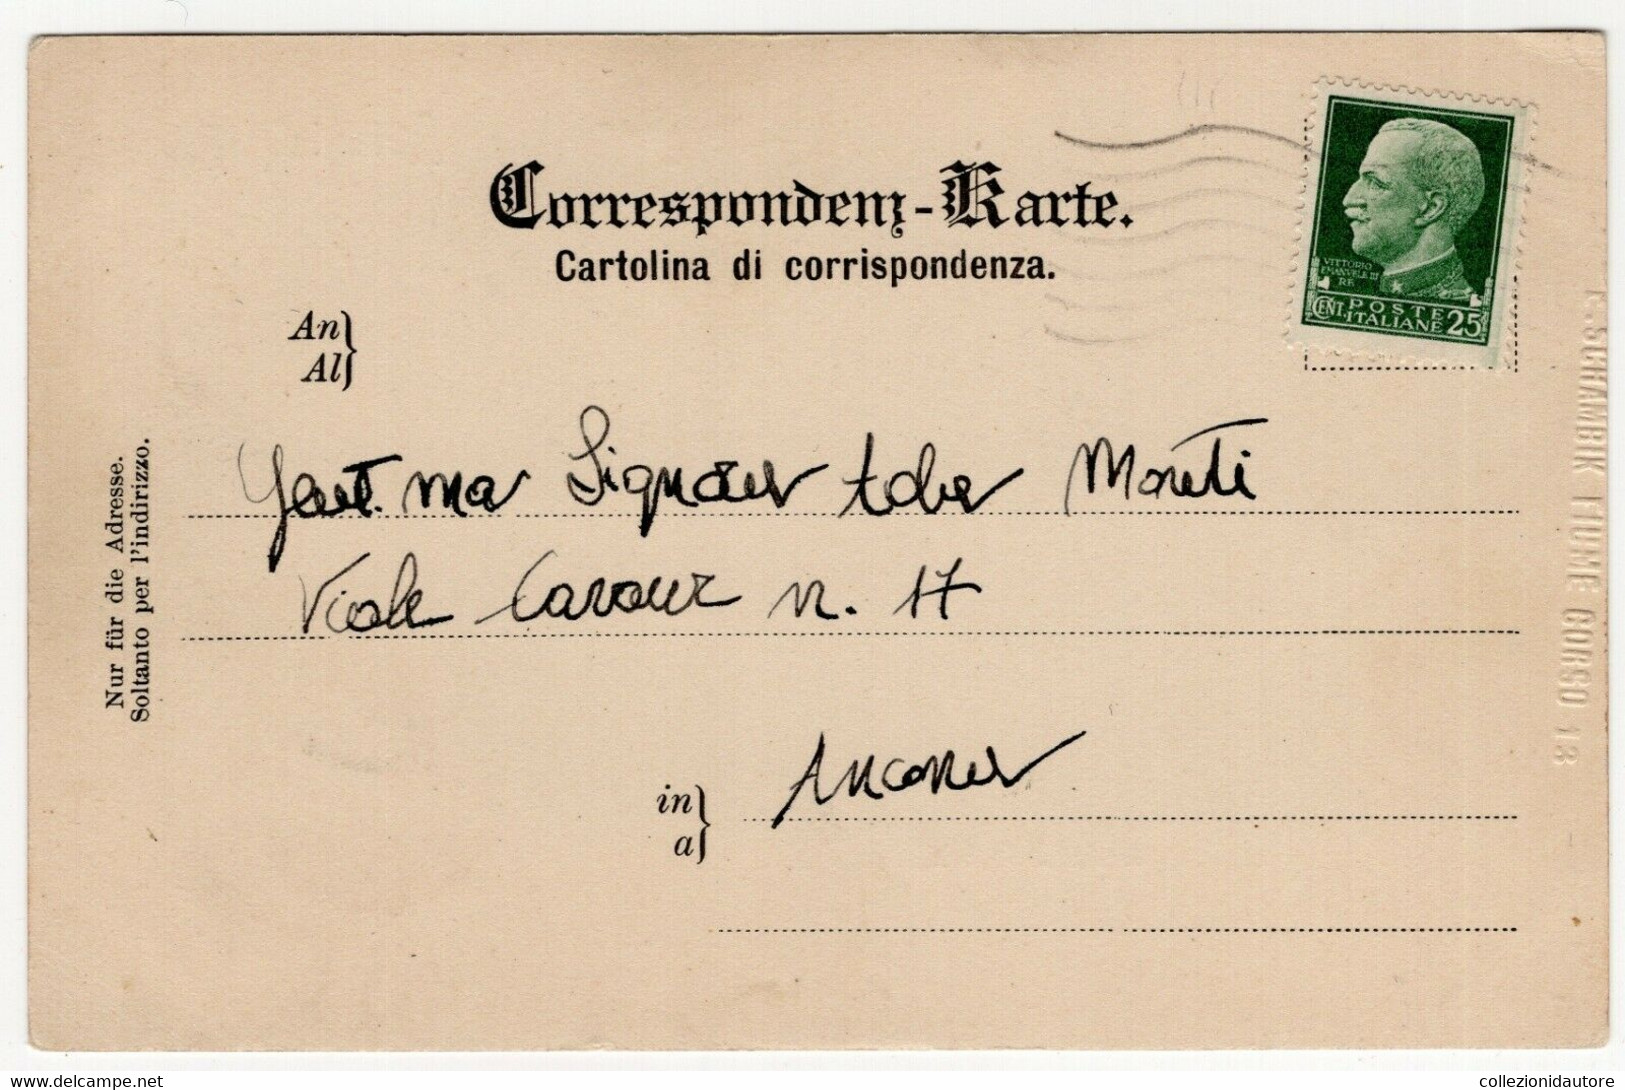 Correspondenz-Karte.
Cartolina di corrispondenza.
VITTORIO
EMANVELE III
RE
CENT. POSTE
ITALIANE 25
An
Al
Gent.ma Signora Adua Moneti
Viale Cavour n. 17
in
a
Ancona
Nur für die Adresse.
Soltanto per l'indirizzo.
SCHAMBIK FIUME CORSO 13
Delcampe.net
collezionidautore